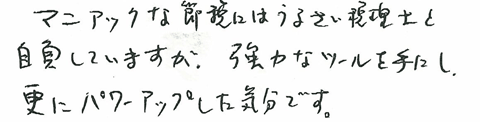 マニアックな節税にはうるさい税理士と
自負していますが、強力なツールを手にし、
更にパワーアップした気分です。